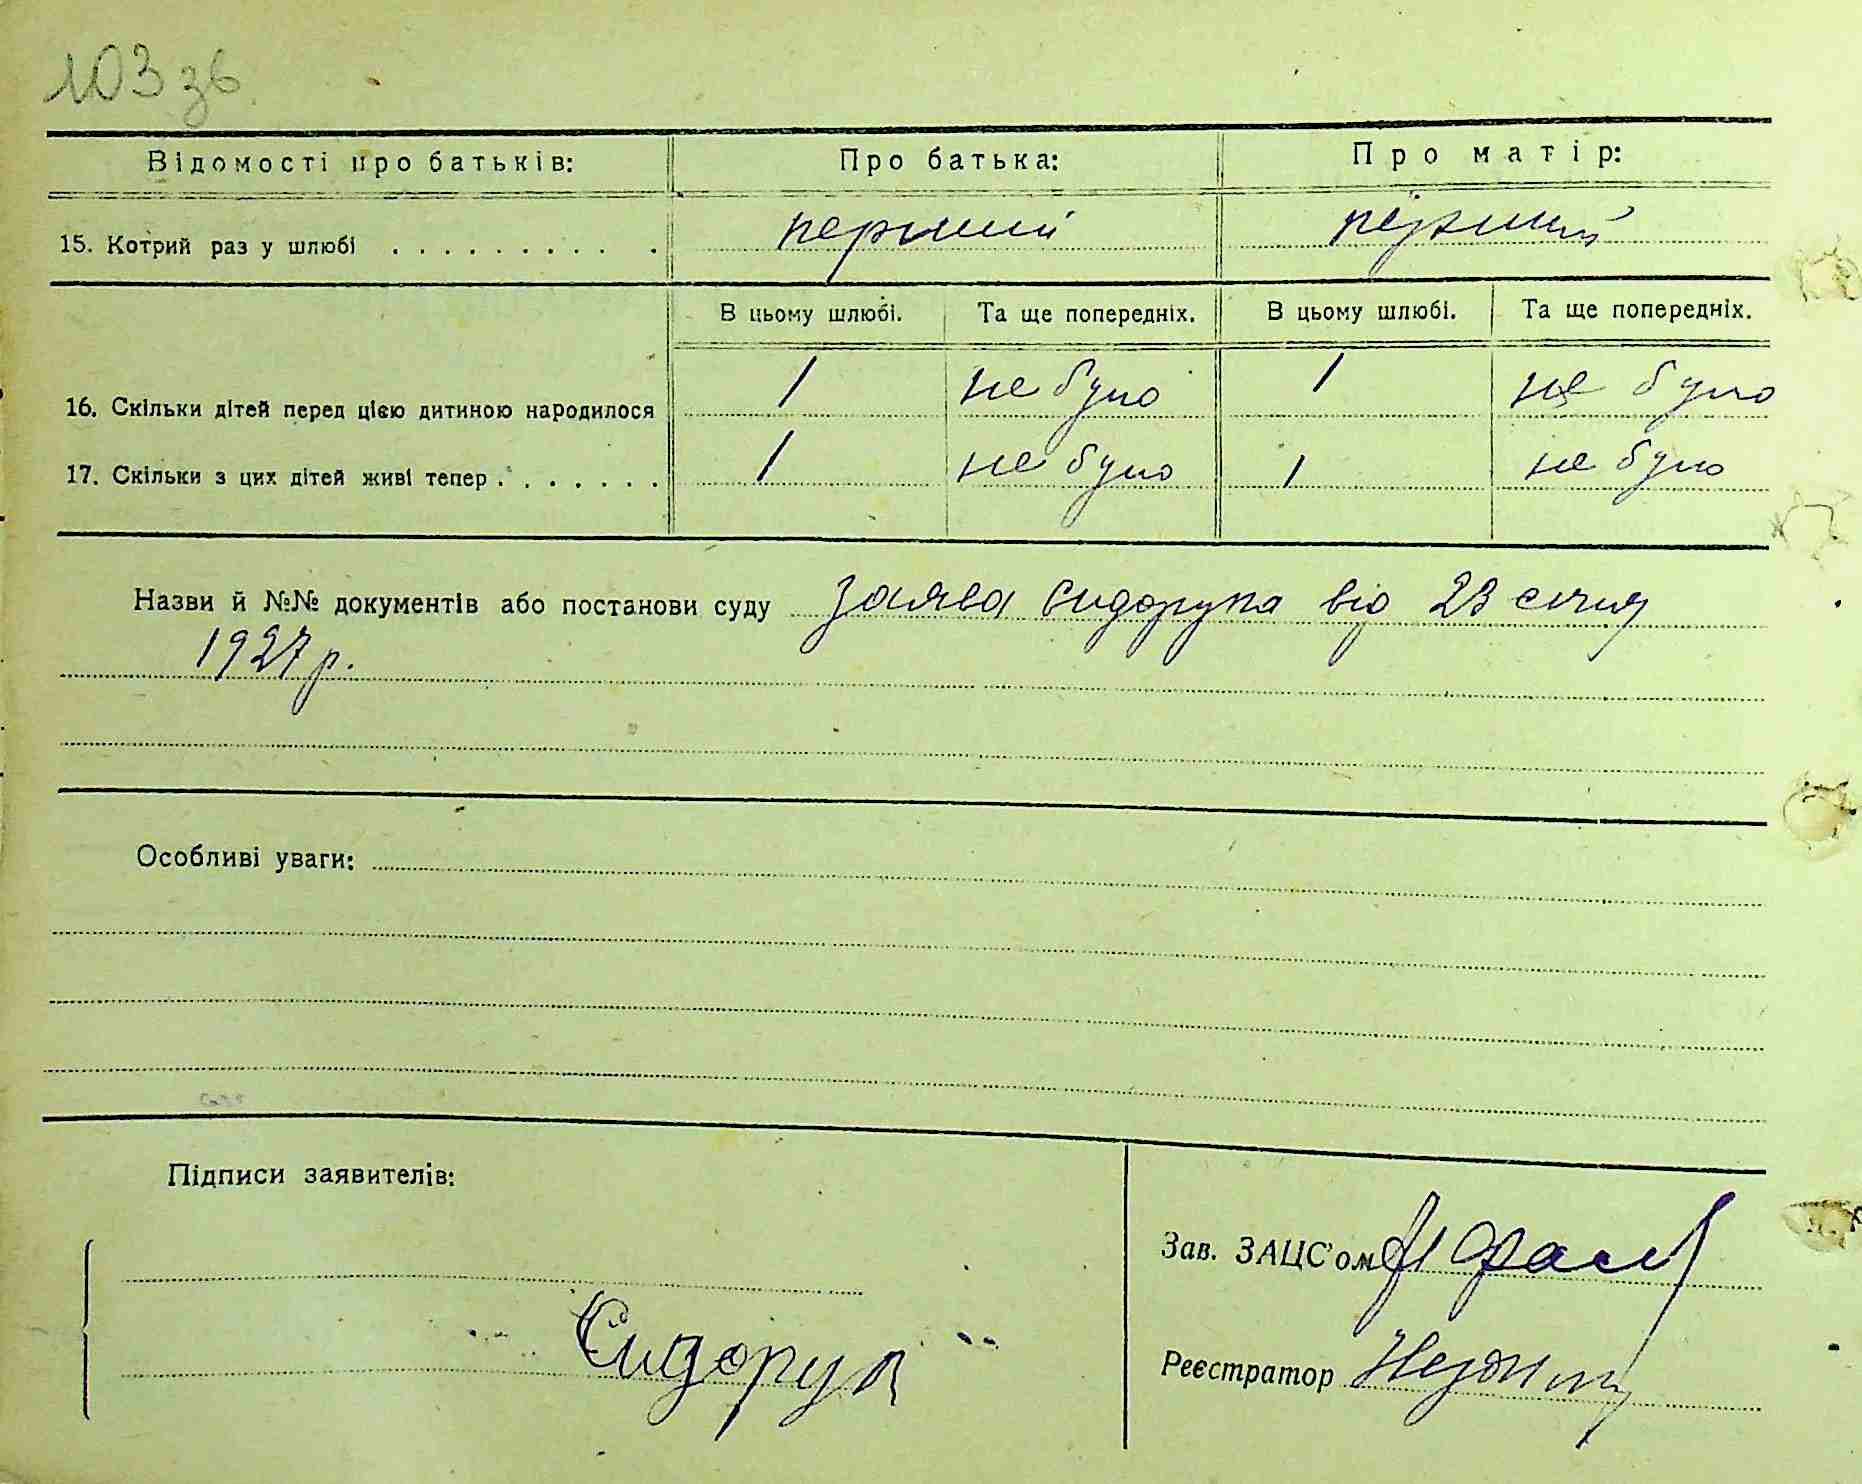 103 зв.
Відомості про батьків: Про батька: Про матір:
15. Котрий раз у шлюбі . . . . . . . . . . перший перший
В цьому шлюбі. Та ще попередніх. В цьому шлюбі. Та ще попередніх.
16. Скільки дітей перед цією дитиною народилося 1 не було 1 не було
17. Скільки з цих дітей живі тепер . . . . . . . 1 не було 1 не було
Назви й №№ документів або постанови суду заява Сидорука від 23 січня
1927 р.
Особливі уваги:
Підписи заявителів:
Зав. ЗАЦС'ом
Сидорук
Реєстратор